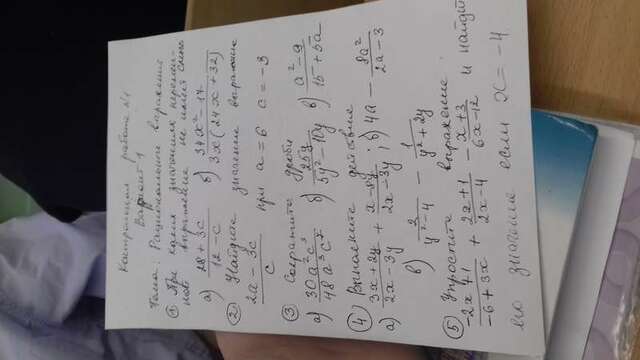 Контрольная работа №1
Вариант 1
Тема: Рациональные выражения
① При каких значениях перемен-
ной выражение не имеет смысл
а) (28 + 3c)/(12 - c) б) (34x² - 17)/(3x(24x + 32))
② Найдите значение выражение
(2a - 3c)/c при a = 6 c = -3
③ Сократите дроби
а) 30a²c³/48a³c² б) 25y/(5y² - 10y) в) (a² - 9)/(15 + 5a)
④ Выполните действие
а) (3x + 2y)/(2x - 3y) + (x - 8y)/(2x - 3y); б) 4a - 8a²/(2a - 3)
в) 2/(y² - 4) - 1/(y² + 2y)
⑤ Упростите выражение
(-2x + 1)/(-6 + 3x) + (2x + 1)/(2x - 4) - (x + 3)/(6x - 12) и найдит
его значение если x = -4